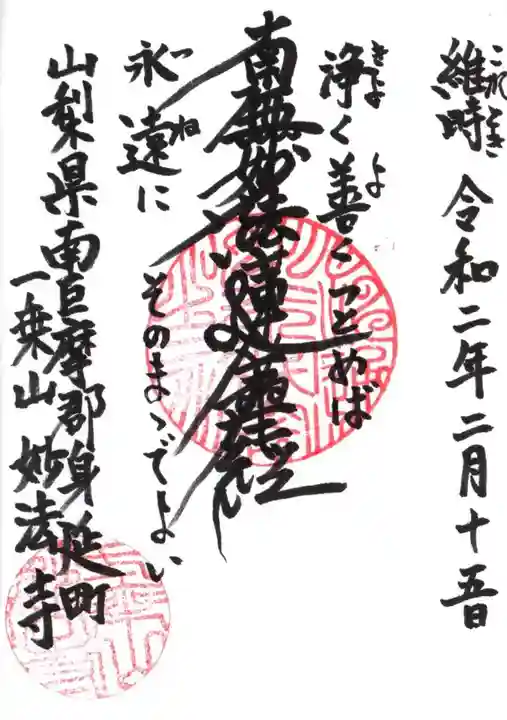 維時 令和二年二月十五日
これ とき
浄く善くつとめば
きよ よ
南無妙法蓮華経
永遠に そのまゝでよい
つね
山梨県南巨摩郡身延町
一乗山 妙法寺